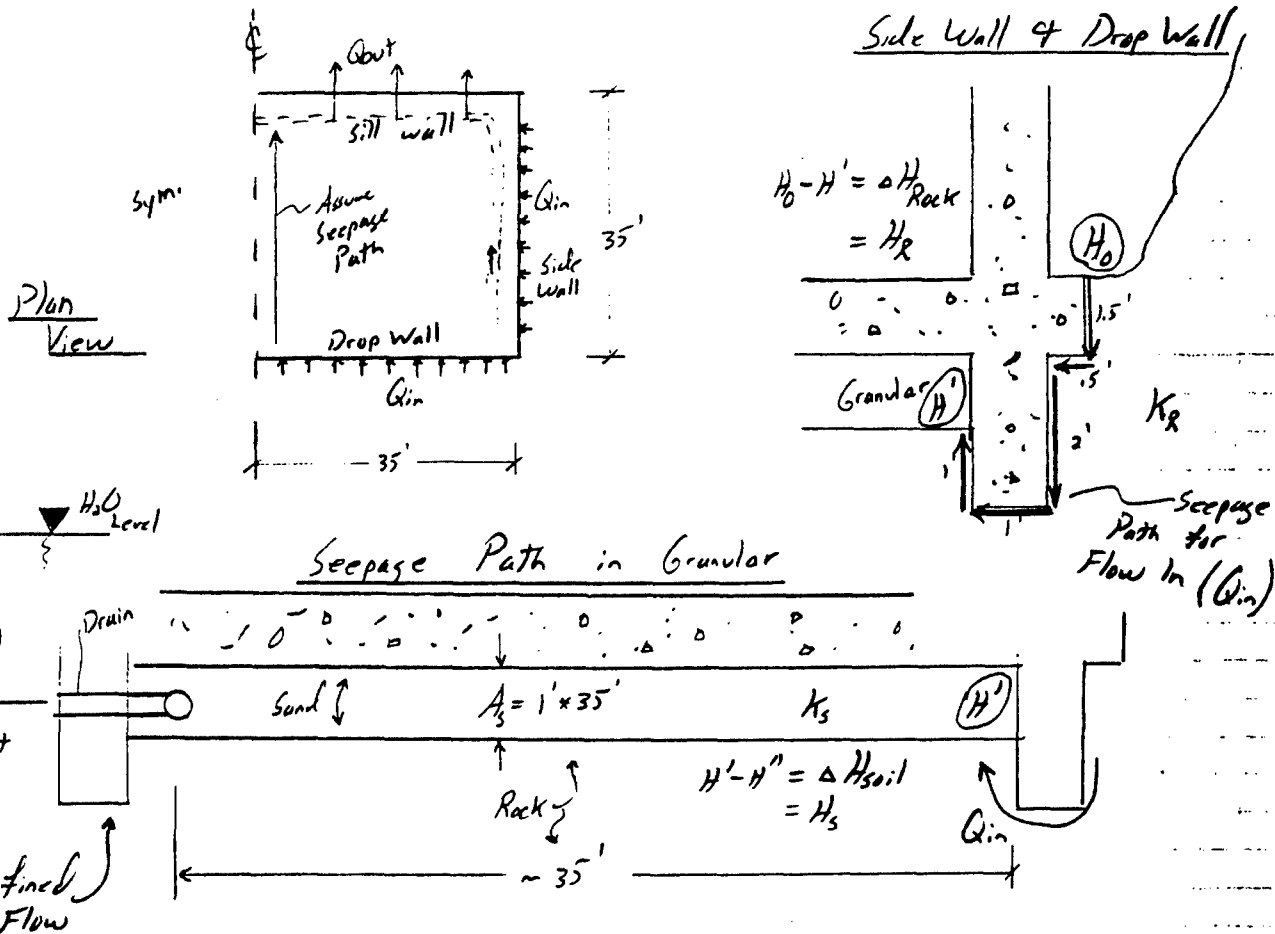 Side Wall & Drop Wall
℄
Qout
sill wall
Sym.
Assume
Seepage
Path
Qin
Side
Wall
35'
Plan
View
Drop Wall
Qin
35'
H₀-H' = ΔH Rock
= H_R
H₀
1.5'
.5'
Granular
H'
K_R
2'
1
1'
Seepage
Path for
Flow In (Qin)
H₂O
Level
Seepage Path in Granular
Drain
Sand
A_s = 1' × 35'
K_s
H'
Rock
H'-H'' = ΔH soil
= H_s
Qin
~ 35'
fined
Flow